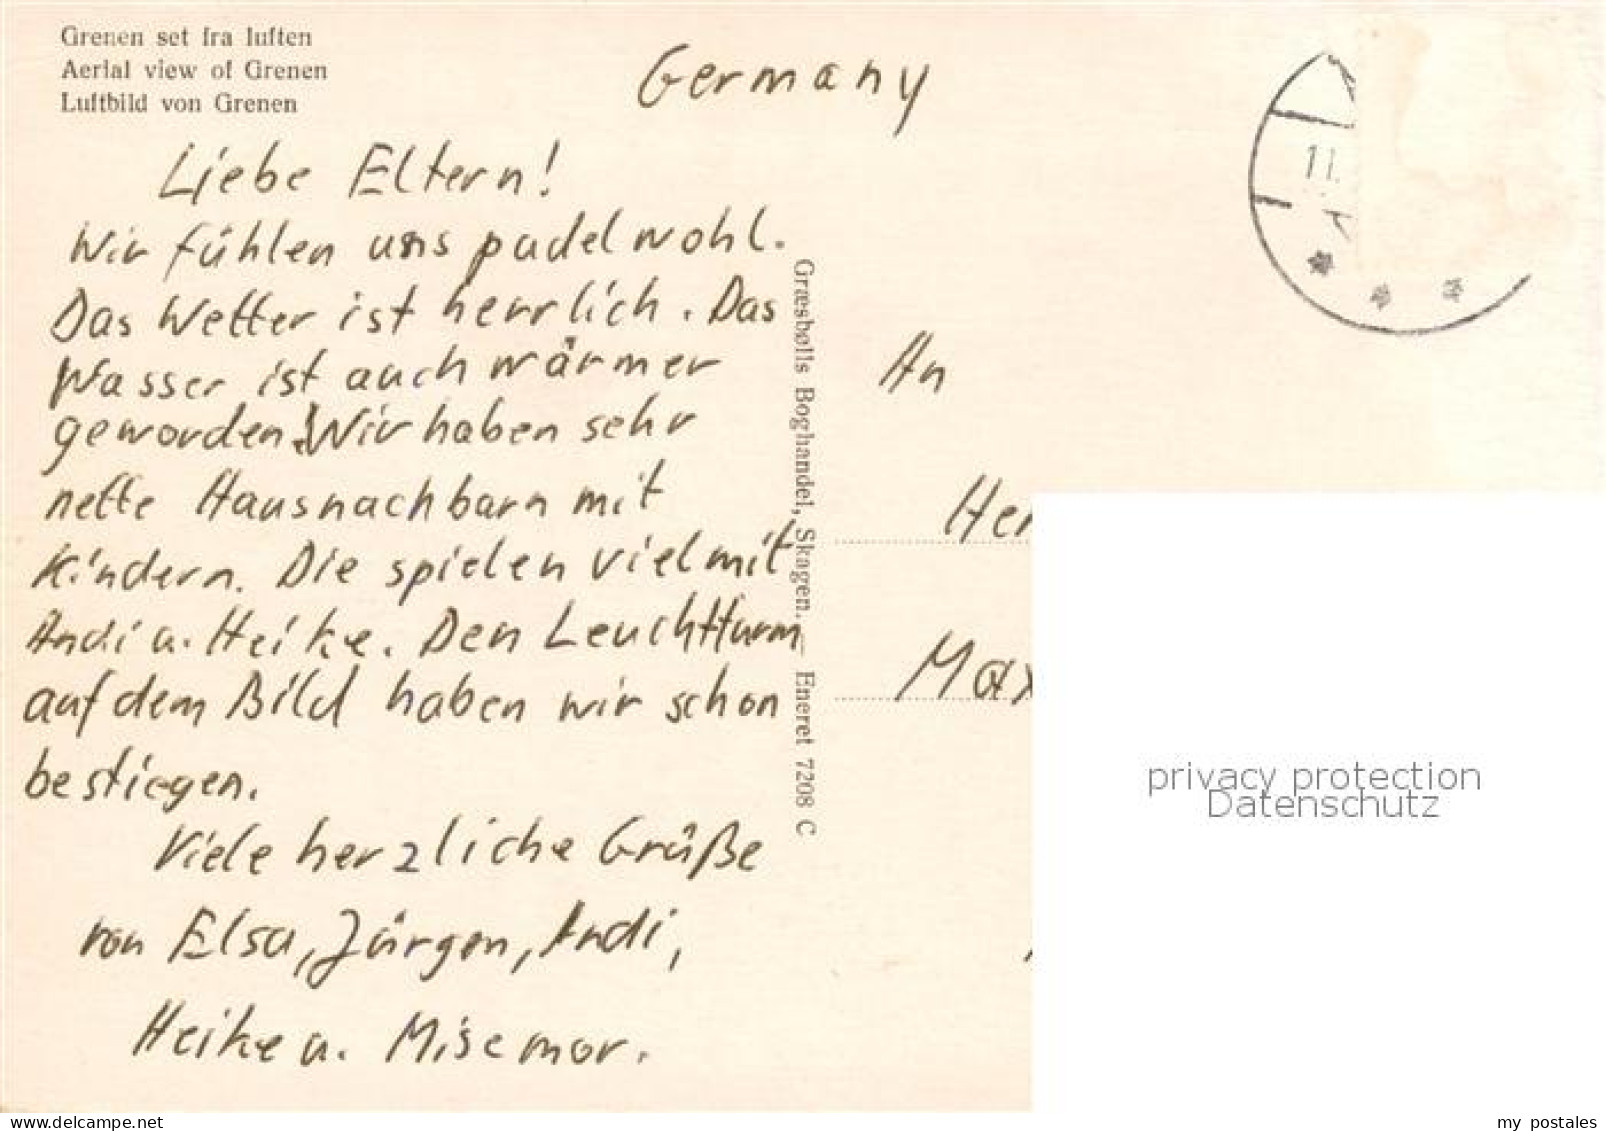 Grenen set fra luften
Aerial view of Grenen
Luftbild von Grenen
Germany
Liebe Eltern!
Wir fühlen uns pudelwohl.
Das Wetter ist herrlich. Das
Wasser ist auch wärmer
geworden. Wir haben sehr
nette Hausnachbarn mit
Kindern. Die spielen viel mit
Andi u. Heike. Den Leuchtturm
auf dem Bild haben wir schon
bestiegen.
Viele herzliche Grüße
von Elsa, Jürgen, Andi,
Heike u. Misemor.
Græsbølls Boghandel, Skagen. Eneret 7208 C
11.
An
Her
Max
privacy protection
Datenschutz
my postales